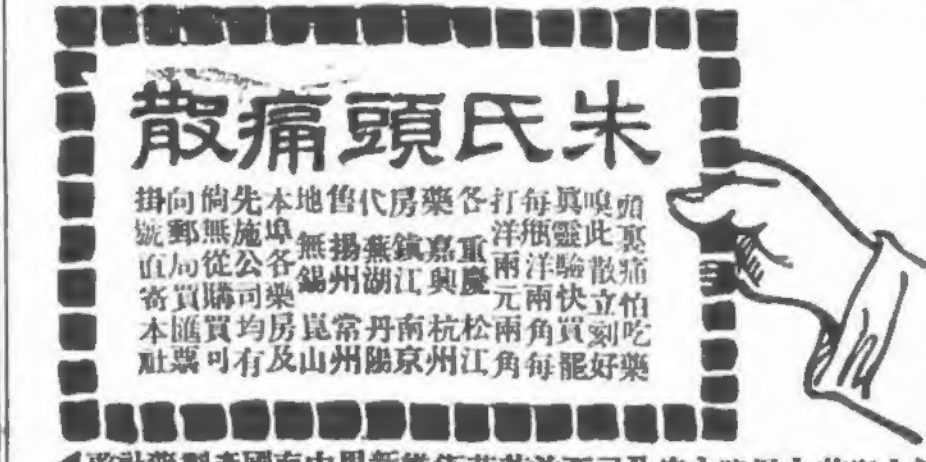 朱氏頭痛散
頭裏痛怕吃藥
嗅此散立刻好
眞靈驗快買罷
每瓶洋兩角每
打洋兩元兩角
各藥房代售地
重慶 松江
嘉興 杭州
鎮江 南京
蕪湖 丹陽
揚州 常州
無錫 崑山
本埠各藥房及
先施公司均有
倘無從購買可
向郵局買匯票
掛號直寄本社